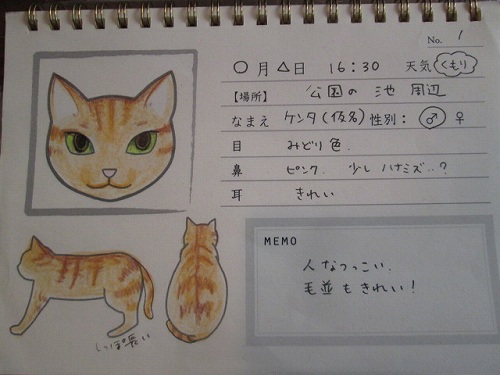 No. 1
〇月△日 16:30 天気 くもり
【場所】 公園の池周辺
なまえ ケンタ(仮名) 性別: ♂ ♀
目 みどり色.
鼻 ピンク. 少しハナミズ..?
耳 きれい
MEMO
人なつっこい.
毛並もきれい!
しっぽ長い